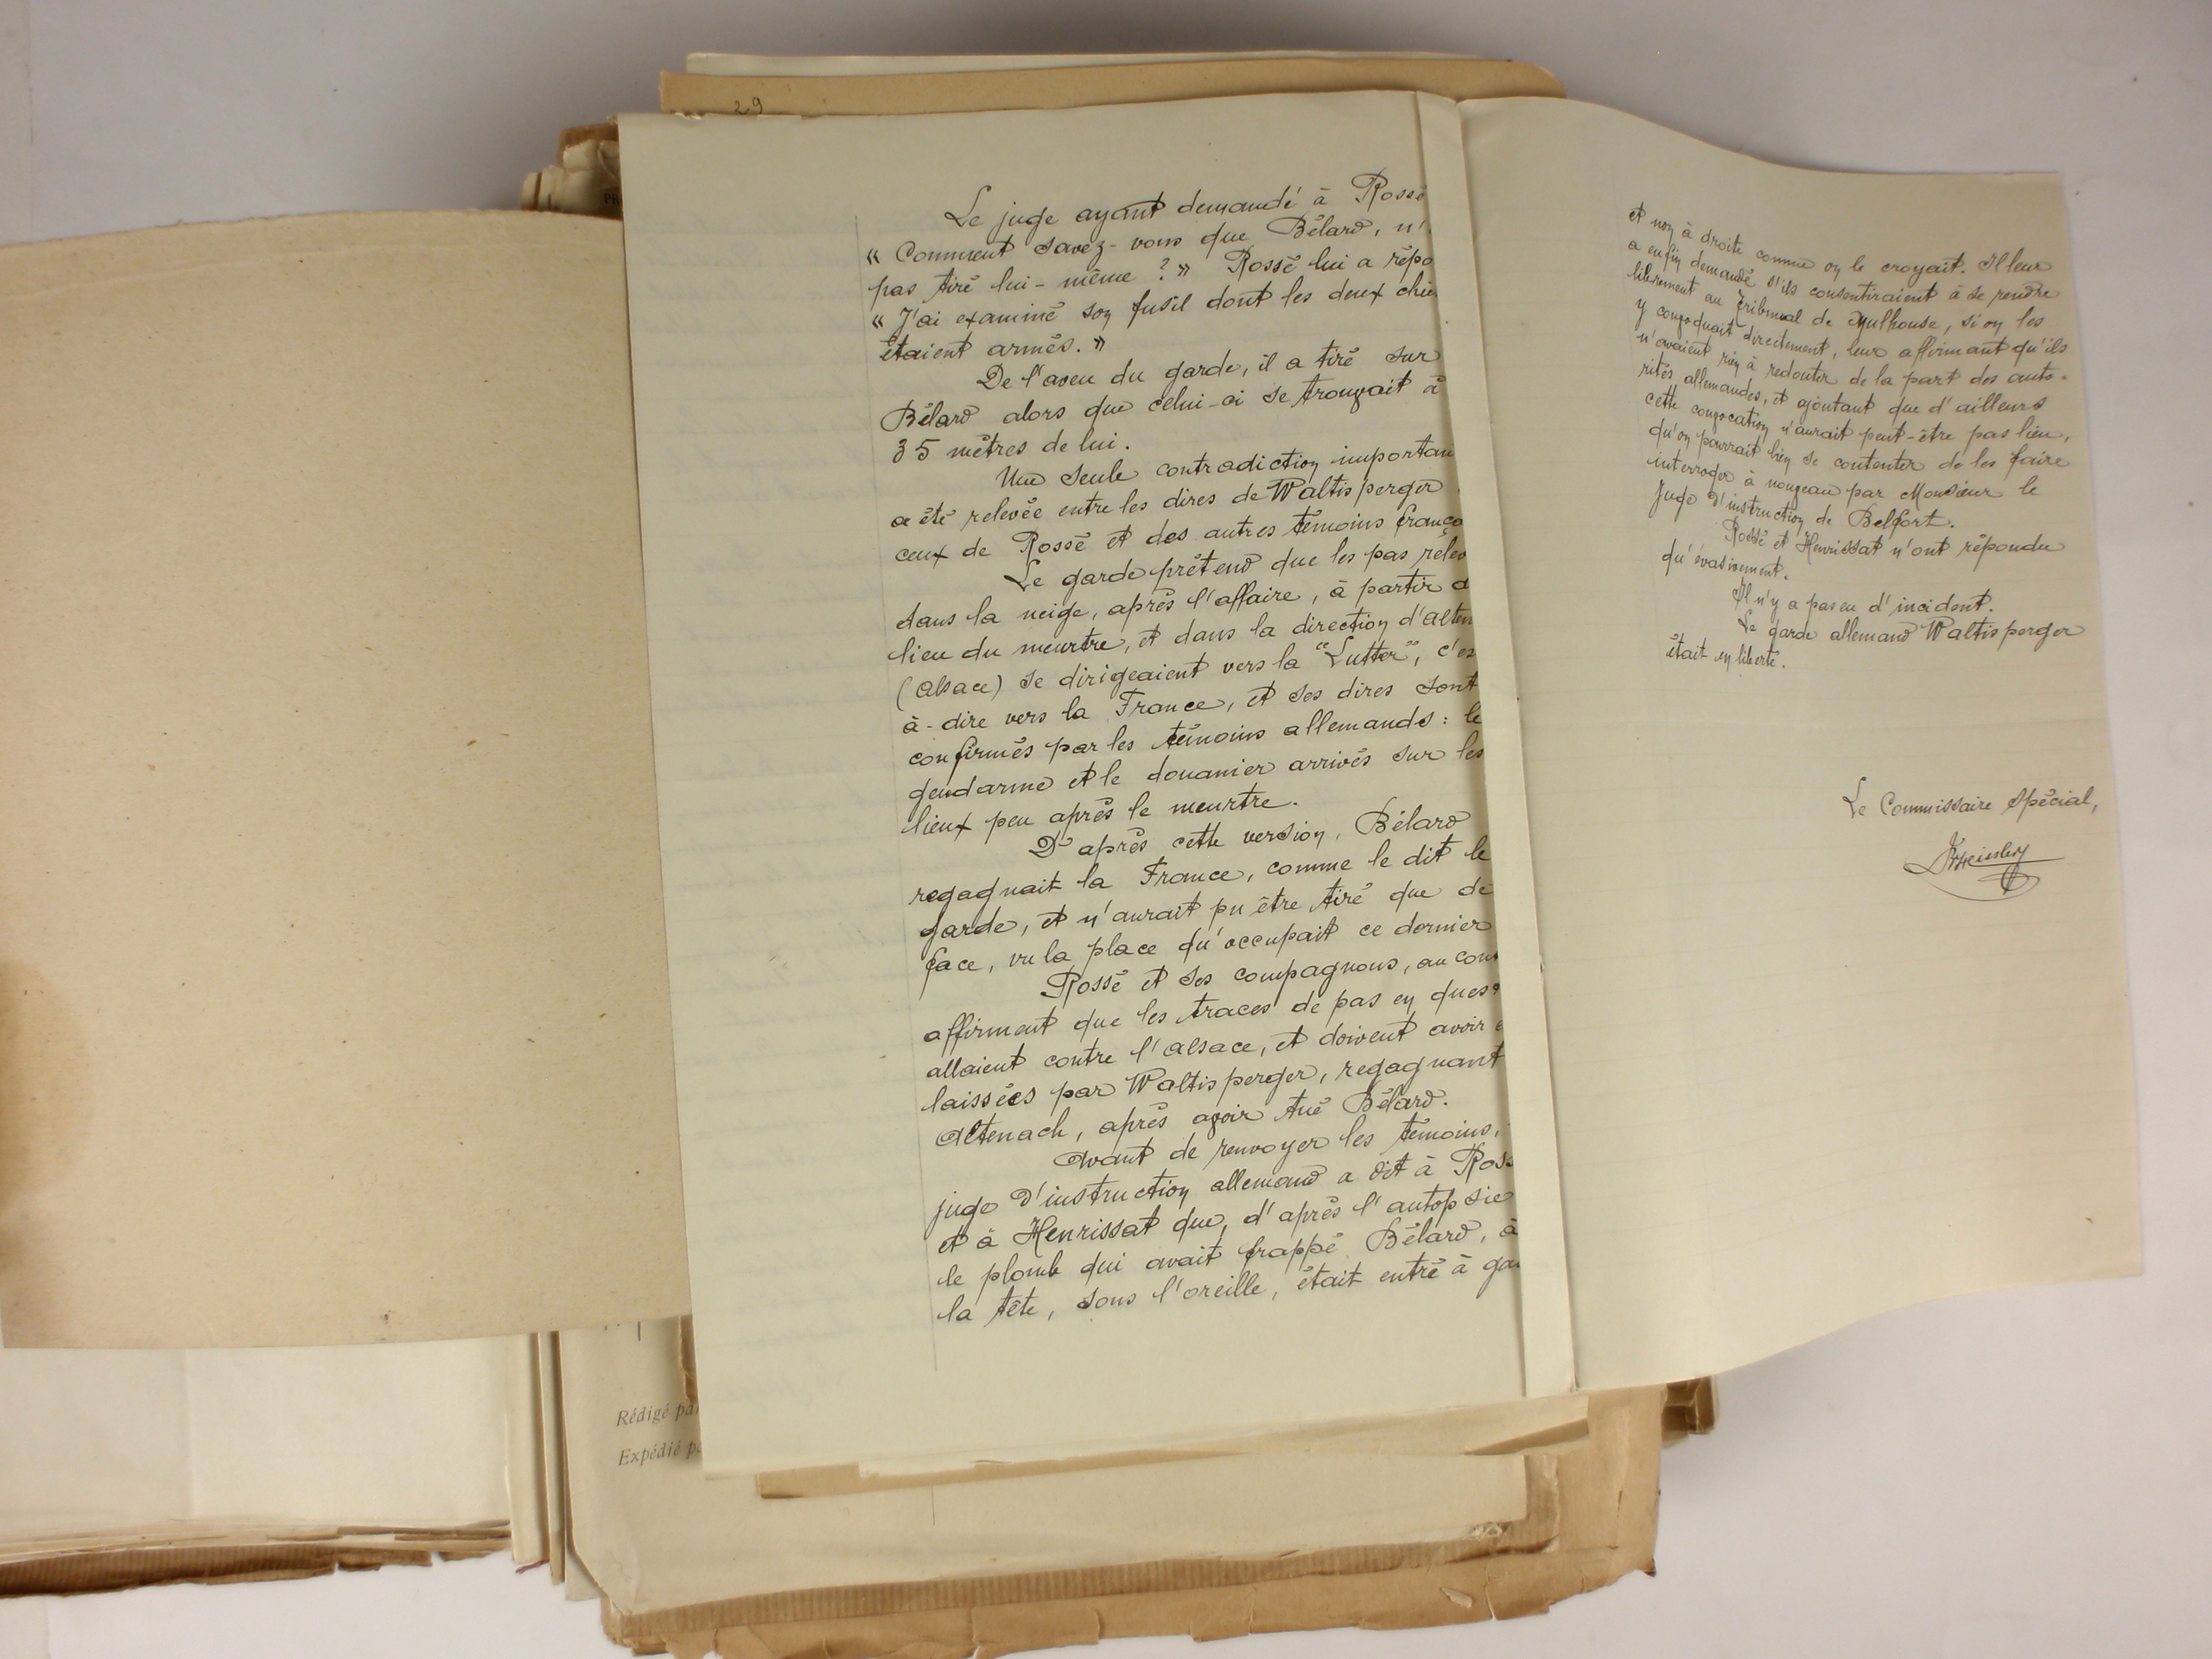 29
Le juge ayant demandé à Rossé
« Comment savez-vous que Bélard, n'
pas tiré lui-même ? » Rossé lui a répo
« J'ai examiné son fusil dont les deux chie
étaient armés. »
De l'aveu du garde, il a tiré sur
Bélard alors que celui-ci se trouvait à
35 mètres de lui.
Une seule contradiction importan
a été relevée entre les dires de Waltisperger
ceux de Rossé et des autres témoins frança
Le garde prétend que les pas relev
dans la neige, après l'affaire, à partir d
lieu du meurtre, et dans la direction d'Alten
(Alsace) se dirigeaient vers la "Lutter", c'es
à-dire vers la France, et ses dires sont
confirmés par les témoins allemands : le
gendarme et le douanier arrivés sur les
lieux peu après le meurtre.
D'après cette version, Bélard
regagnait la France, comme le dit le
garde, et n'aurait pu être tiré que de
face, vu la place qu'occupait ce dernier
Rossé et ses compagnons, au con
affirment que les traces de pas en ques
allaient contre l'Alsace, et doivent avoir é
laissées par Waltisperger, regagnant
Altenach, après avoir tué Bélard.
Avant de renvoyer les témoins,
juge d'instruction allemand a dit à Ross
et à Henrissat que, d'après l'autopsie
le plomb qui avait frappé Bélard, à
la tête, sous l'oreille, était entré à gau
et non à droite comme on le croyait. Il leur
a enfin demandé s'ils consentiraient à se rendre
librement au Tribunal de Mulhouse, si on les
y convoquait directement, leur affirmant qu'ils
n'avaient rien à redouter de la part des auto-
rités allemandes, et ajoutant que d'ailleurs
cette convocation n'aurait peut-être pas lieu,
qu'on pourrait bien se contenter de les faire
interroger à nouveau par Monsieur le
Juge d'instruction de Belfort.
Rossé et Henrissat n'ont répondu
qu'évasivement.
Il n'y a pas eu d'incident.
Le garde allemand Waltisperger
était en liberté.
Le Commissaire Spécial,
Rédigé par
Expédié pa